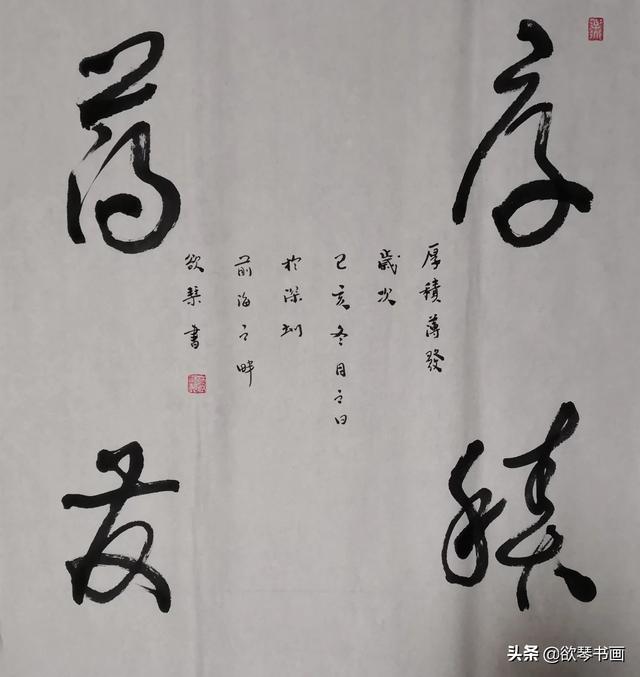 厚積
薄發
厚積薄發
歲次
己亥冬月之日
於深圳
前海之畔
欲琴書
头条 @欲琴书画